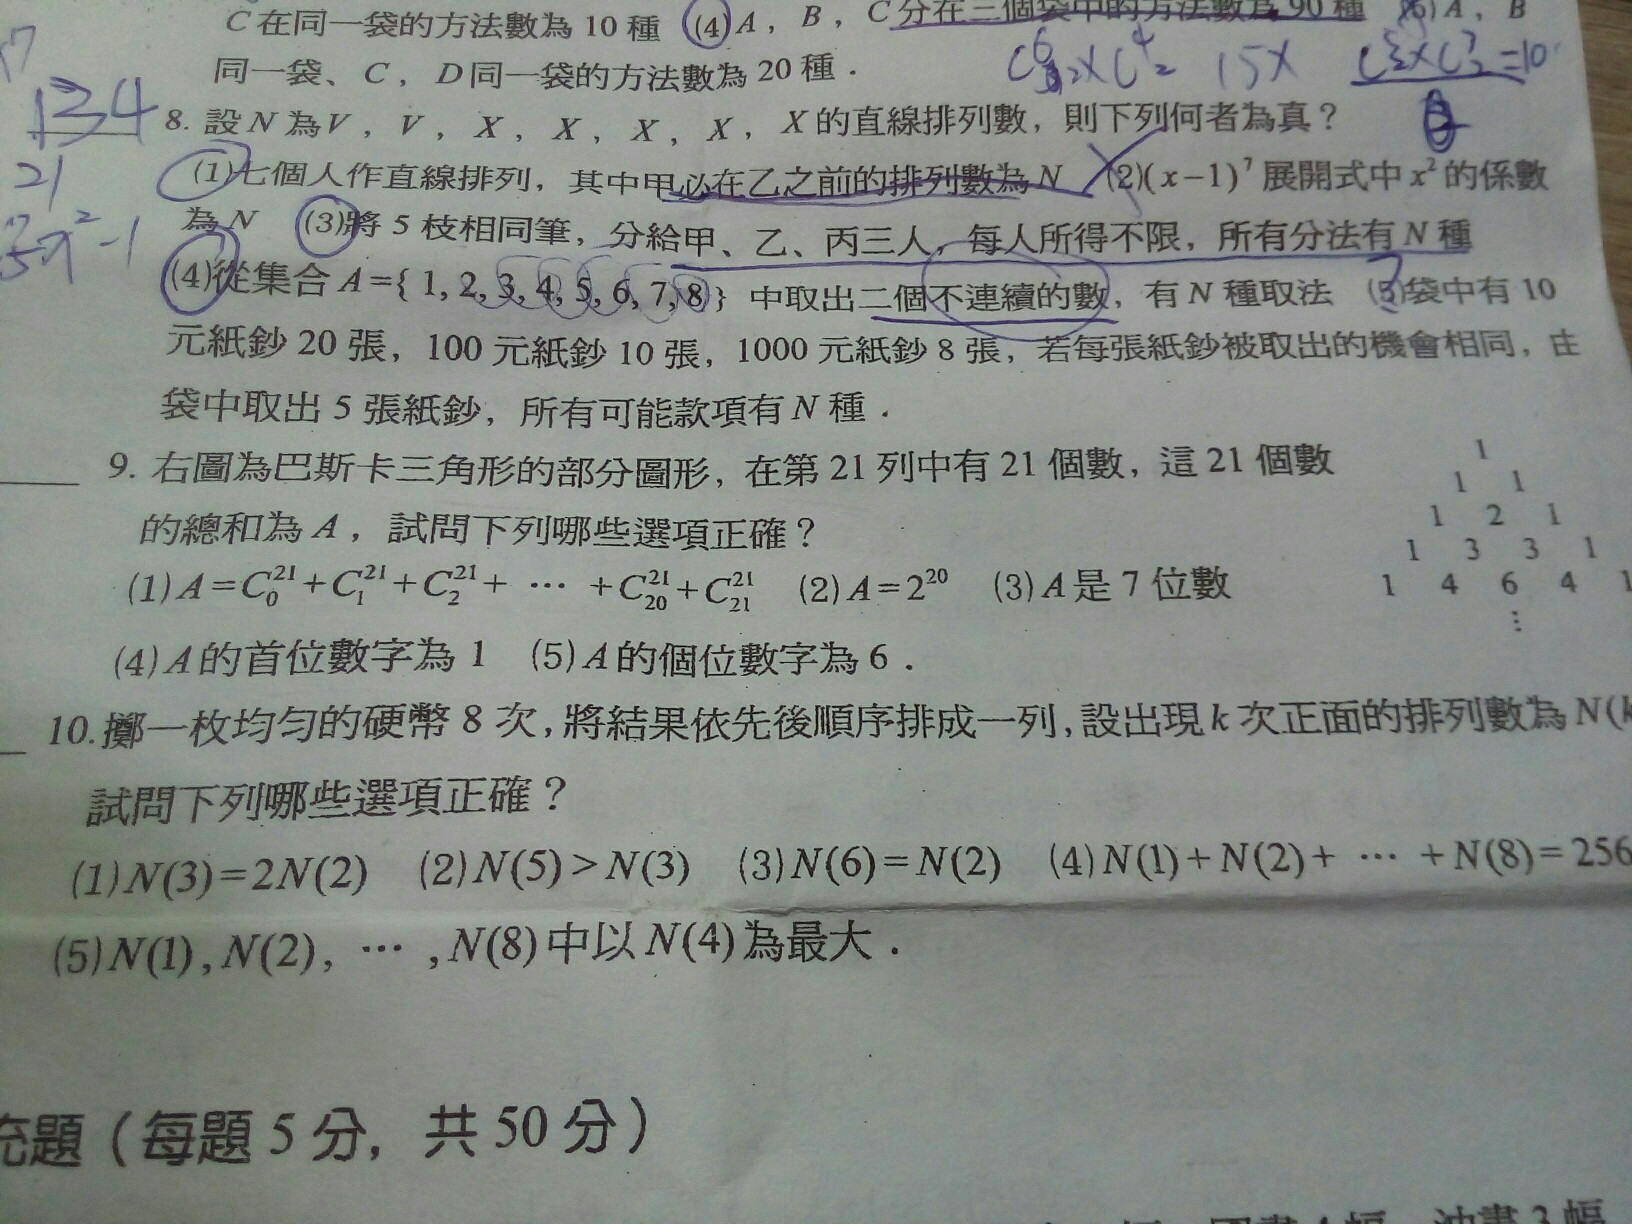 C 在同一袋的方法數為 10 種 (4) A , B , C 分在三個袋中的方法數為 90 種 (5) A , B
同一袋、C , D 同一袋的方法數為 20 種 .
134
21
8. 設 N 為 V , V , X , X , X , X , X 的直線排列數, 則下列何者為真?
(1)七個人作直線排列, 其中甲必在乙之前的排列數為 N (2)(x-1)⁷ 展開式中 x² 的係數
為 N (3)將 5 枝相同筆, 分給甲、乙、丙三人, 每人所得不限, 所有分法有 N 種
(4)從集合 A={ 1, 2, 3, 4, 5, 6, 7, 8 } 中取出二個不連續的數, 有 N 種取法 (5)袋中有 10
元紙鈔 20 張, 100 元紙鈔 10 張, 1000 元紙鈔 8 張, 若每張紙鈔被取出的機會相同, 由
袋中取出 5 張紙鈔, 所有可能款項有 N 種 .
9. 右圖為巴斯卡三角形的部分圖形, 在第 21 列中有 21 個數, 這 21 個數
的總和為 A , 試問下列哪些選項正確?
(1) A=C₀²¹+C₁²¹+C₂²¹+ ⋯ +C₂₀²¹+C₂₁²¹ (2) A=2²⁰ (3) A 是 7 位數
(4) A 的首位數字為 1 (5) A 的個位數字為 6 .
1
1 1
1 2 1
1 3 3 1
1 4 6 4 1
⋮
10. 擲一枚均勻的硬幣 8 次, 將結果依先後順序排成一列, 設出現 k 次正面的排列數為 N(k
試問下列哪些選項正確?
(1) N(3)=2N(2) (2) N(5)>N(3) (3) N(6)=N(2) (4) N(1)+N(2)+ ⋯ +N(8)=256
(5) N(1), N(2), ⋯ , N(8) 中以 N(4) 為最大 .
充題 (每題 5 分, 共 50 分)